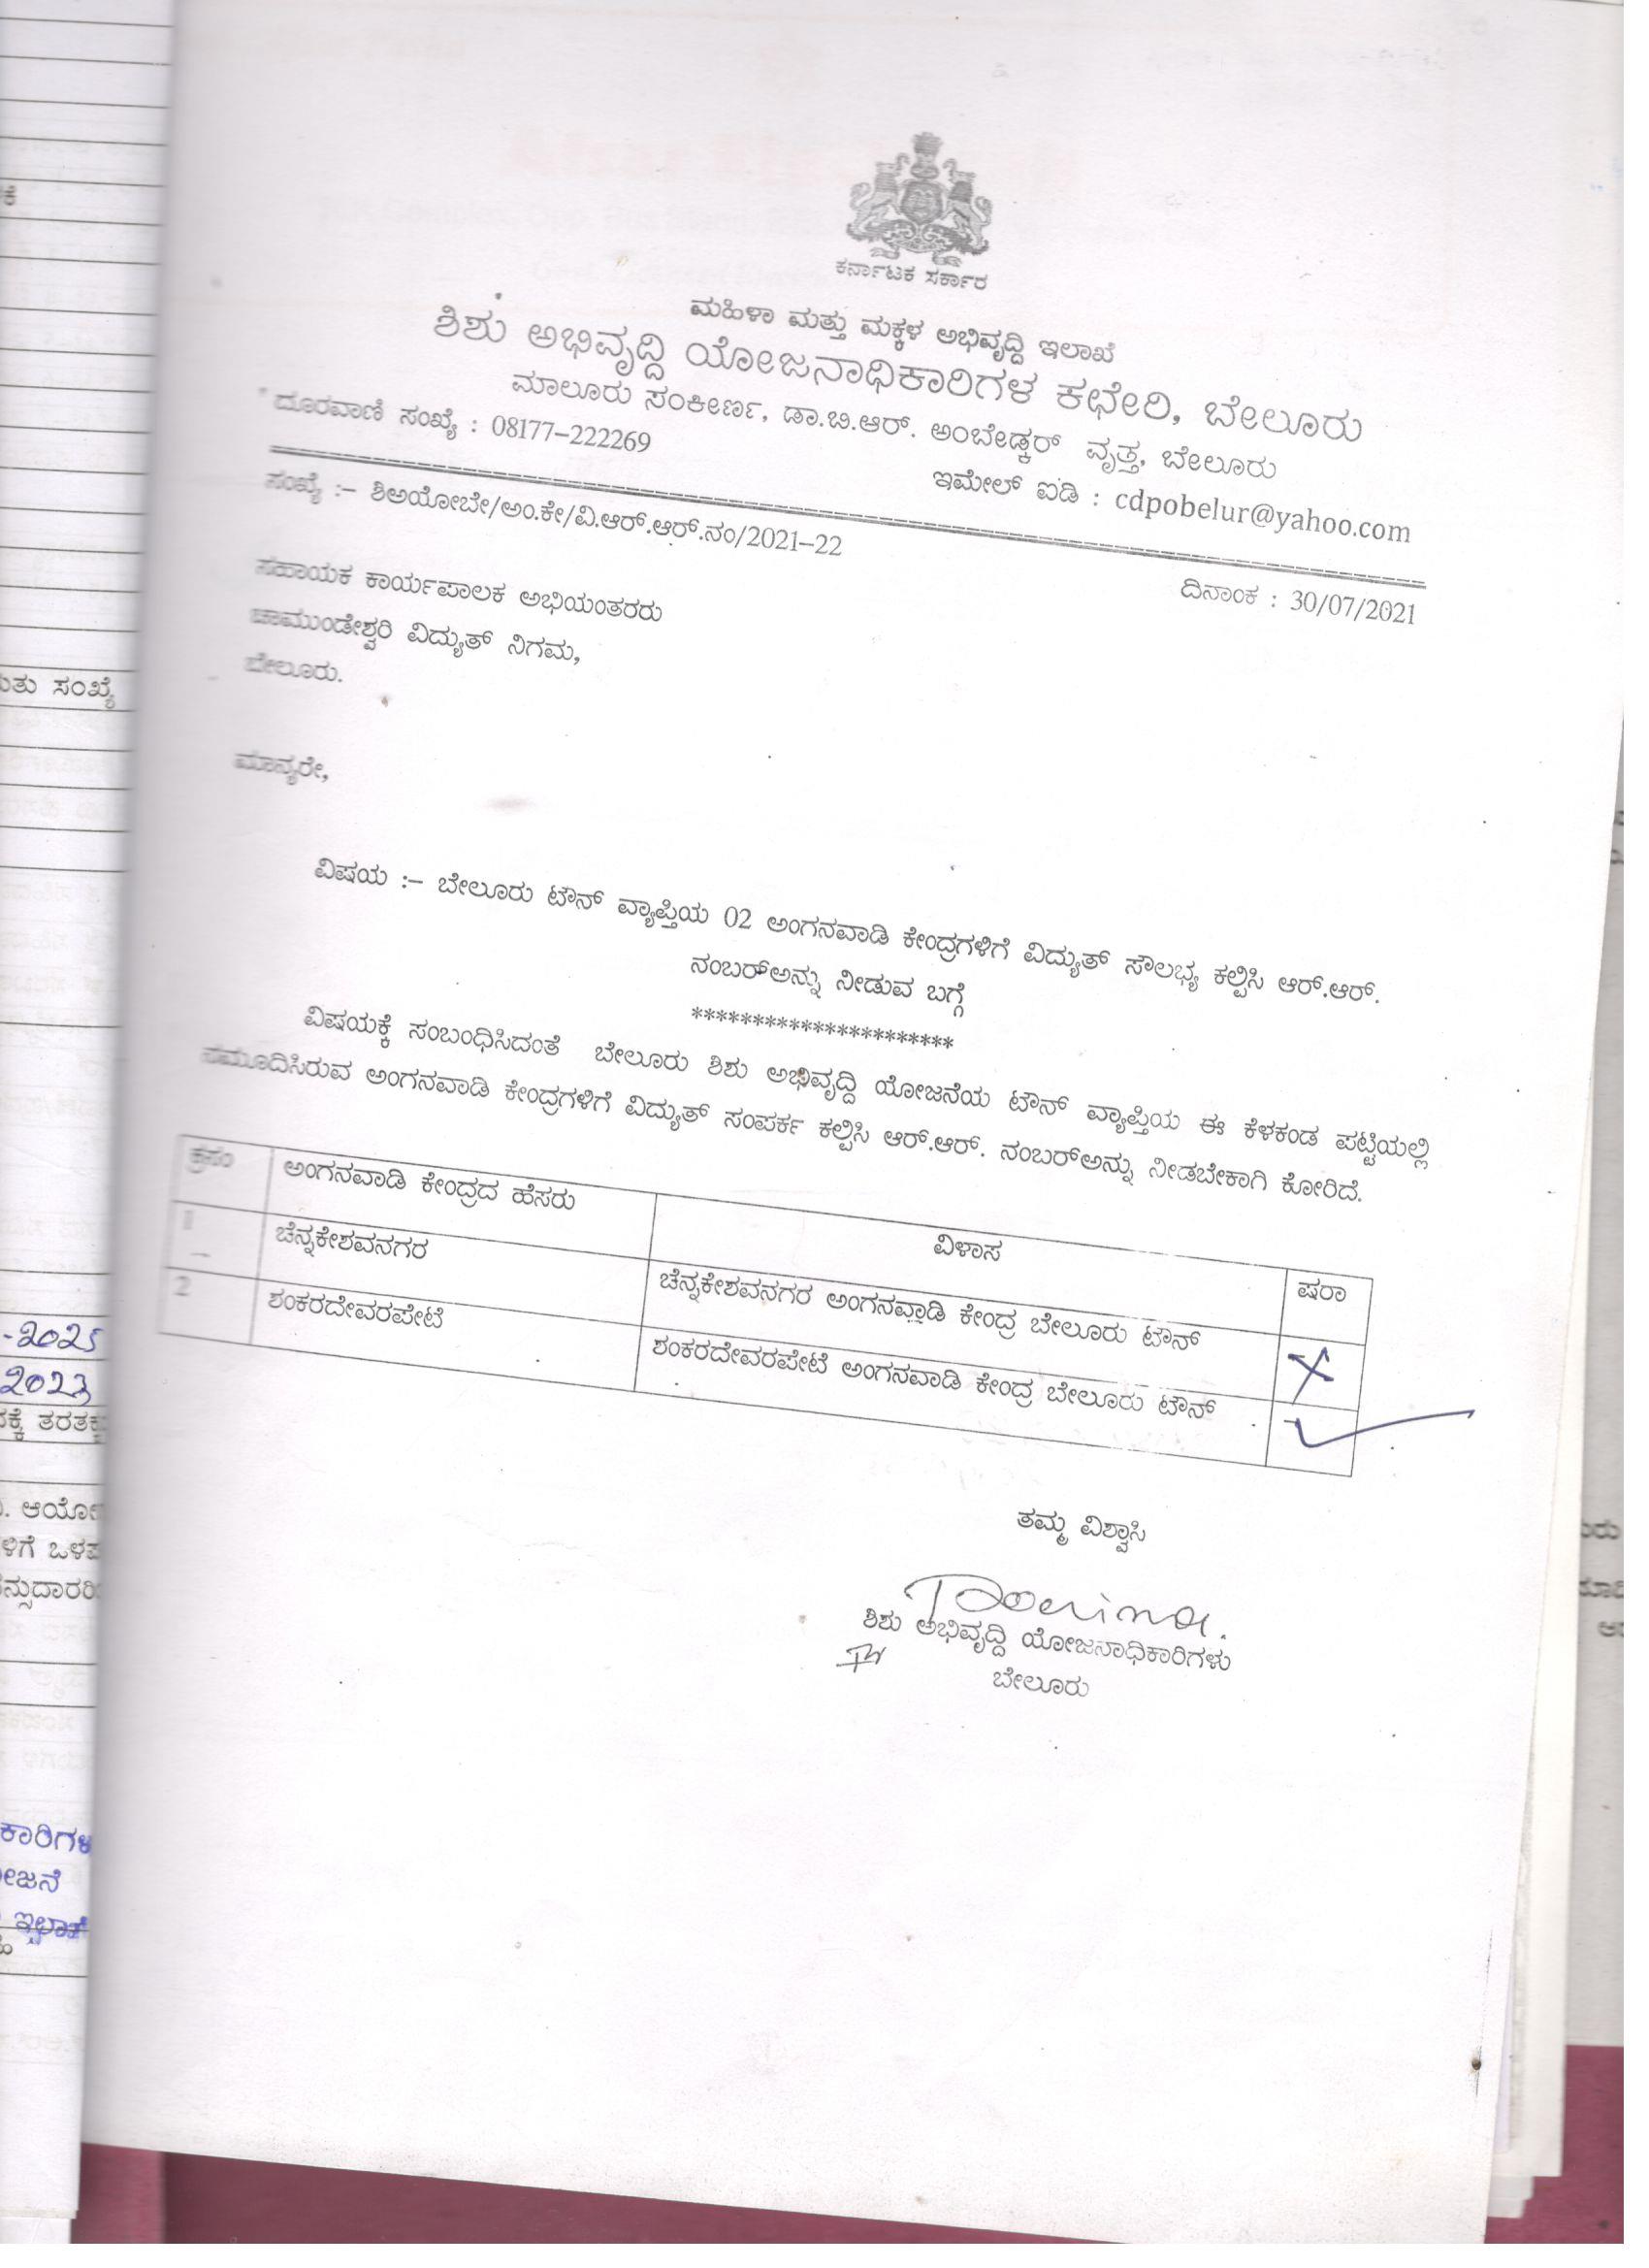 ಕರ್ನಾಟಕ ಸರ್ಕಾರ
ಮಹಿಳಾ ಮತ್ತು ಮಕ್ಕಳ ಅಭಿವೃದ್ಧಿ ಇಲಾಖೆ
ಶಿಶು ಅಭಿವೃದ್ಧಿ ಯೋಜನಾಧಿಕಾರಿಗಳ ಕಛೇರಿ, ಬೇಲೂರು
ಮಾಲೂರು ಸಂಕೀರ್ಣ, ಡಾ.ಬಿ.ಆರ್. ಅಂಬೇಡ್ಕರ್ ವೃತ್ತ, ಬೇಲೂರು
ದೂರವಾಣಿ ಸಂಖ್ಯೆ : 08177-222269 ಇಮೇಲ್ ಐಡಿ : cdpobelur@yahoo.com
ಸಂಖ್ಯೆ :- ಶಿಅಯೋಬೇ/ಅಂ.ಕೇ/ವಿ.ಆರ್.ಆರ್.ನಂ/2021-22 ದಿನಾಂಕ : 30/07/2021
ಸಹಾಯಕ ಕಾರ್ಯಪಾಲಕ ಅಭಿಯಂತರರು
ಚಾಮುಂಡೇಶ್ವರಿ ವಿದ್ಯುತ್ ನಿಗಮ,
ಬೇಲೂರು.
ಮಾನ್ಯರೇ,
ವಿಷಯ :- ಬೇಲೂರು ಟೌನ್ ವ್ಯಾಪ್ತಿಯ 02 ಅಂಗನವಾಡಿ ಕೇಂದ್ರಗಳಿಗೆ ವಿದ್ಯುತ್ ಸೌಲಭ್ಯ ಕಲ್ಪಿಸಿ ಆರ್.ಆರ್.
ನಂಬರ್‌ಅನ್ನು ನೀಡುವ ಬಗ್ಗೆ
**********************
ವಿಷಯಕ್ಕೆ ಸಂಬಂಧಿಸಿದಂತೆ ಬೇಲೂರು ಶಿಶು ಅಭಿವೃದ್ಧಿ ಯೋಜನೆಯ ಟೌನ್ ವ್ಯಾಪ್ತಿಯ ಈ ಕೆಳಕಂಡ ಪಟ್ಟಿಯಲ್ಲಿ
ನಮೂದಿಸಿರುವ ಅಂಗನವಾಡಿ ಕೇಂದ್ರಗಳಿಗೆ ವಿದ್ಯುತ್ ಸಂಪರ್ಕ ಕಲ್ಪಿಸಿ ಆರ್.ಆರ್. ನಂಬರ್‌ಅನ್ನು ನೀಡಬೇಕಾಗಿ ಕೋರಿದೆ.
ಕ್ರಸಂ ಅಂಗನವಾಡಿ ಕೇಂದ್ರದ ಹೆಸರು ವಿಳಾಸ ಷರಾ
1 ಚೆನ್ನಕೇಶವನಗರ ಚೆನ್ನಕೇಶವನಗರ ಅಂಗನವಾಡಿ ಕೇಂದ್ರ ಬೇಲೂರು ಟೌನ್
2 ಶಂಕರದೇವರಪೇಟೆ ಶಂಕರದೇವರಪೇಟೆ ಅಂಗನವಾಡಿ ಕೇಂದ್ರ ಬೇಲೂರು ಟೌನ್
ತಮ್ಮ ವಿಶ್ವಾಸಿ
ಶಿಶು ಅಭಿವೃದ್ಧಿ ಯೋಜನಾಧಿಕಾರಿಗಳು
ಬೇಲೂರು
ಸಂಖ್ಯೆ
-2025
2023